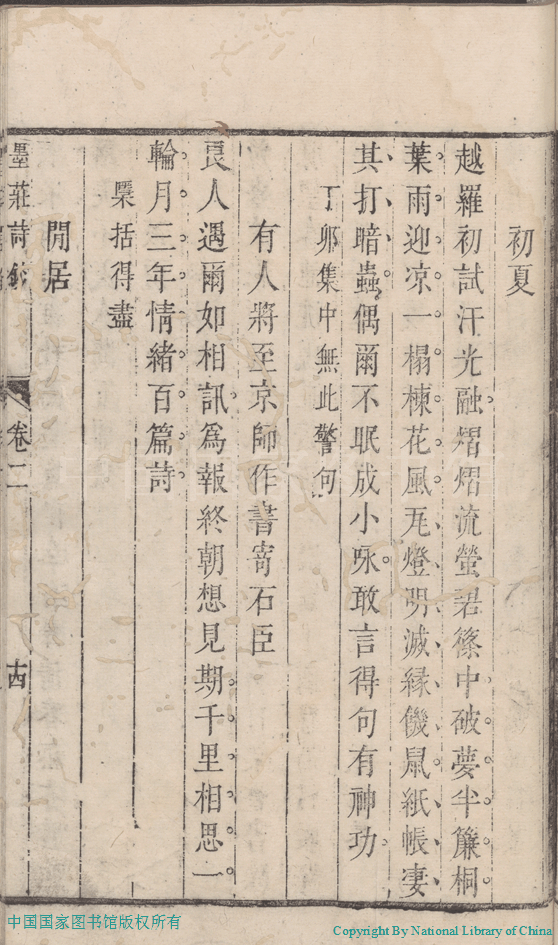 初夏
越羅初試汗光融熠熠流螢碧篠中破夢半簾桐
葉雨迎凉一榻楝花風瓦燈明滅緣饑鼠紙帳凄
其打暗蟲偶爾不眠成小咏敢言得句有神功
丁卯集中無此警句
有人將至京師作書寄石臣
良人遇爾如相訊爲報終朝想見期千里相思一
輪月三年情緒百篇詩
括得盡
閒居
墨莊詩鈔 卷二 十四
中国国家图书馆版权所有
Copyright By National Library of China